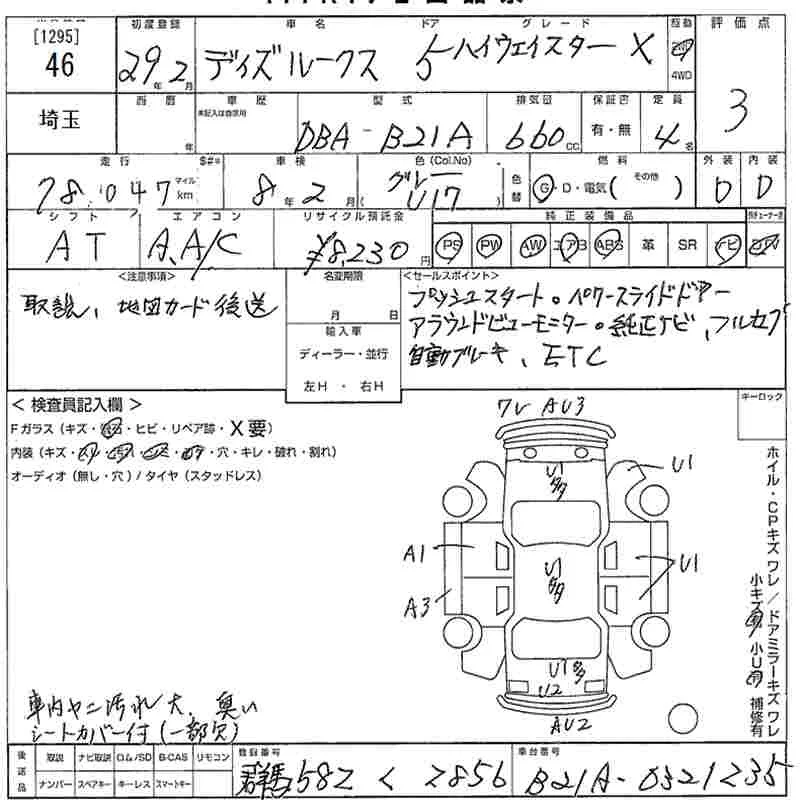 初度登録 車名 ドア グレード 駆動 評価点
[1295]
46 29年2月 デイズルークス 5 ハイウェイスター X 2WD 4WD 3
埼玉 西暦 年 車歴 未記入は自家用 型式 DBA-B21A 排気量 660cc 保証書 有・無 定員 4名
走行 $#* 車検 色(Col.No) 燃料 外装 内装
78,047 マイル km 8年2月 グレー U17 色替 G・D・電気( その他 ) D D
シフト エアコン リサイクル預託金 純正装備品
AT A.A/C ¥8,230円 PS PW AW エアB ABS 革 SR ナビ
<注意事項> 名変期限 <セールスポイント>
取説、地図カード後送
月 日
輸入車
ディーラー・並行
左H・右H
プッシュスタート。パワースライドドアー
アラウンドビューモニター。純正ナビ、フルセグ
自動ブレーキ、ETC
<検査員記入欄> キーロック
Fガラス(キズ・飛石・ヒビ・リペア跡・X要)
内装(キズ・・穴・キレ・破れ・割れ)
オーディオ(無し・穴)/タイヤ(スタッドレス)
ワレ AU3
U1多
U1
A1
U1多
U1
A3
U1多
U2
AU2
ホイル・CPキズワレ/ドアミラーキズワレ
小キズ 小U 補修有
車内ヤニ汚れ大、臭い
シートカバー付(一部欠)
後送品 取説 ナビ取説 CD/SD B-CAS リモコン
ナンバー スペアキー キーレス スマートキー
登録番号 群馬582 く 2856
車台番号 B21A-0321235